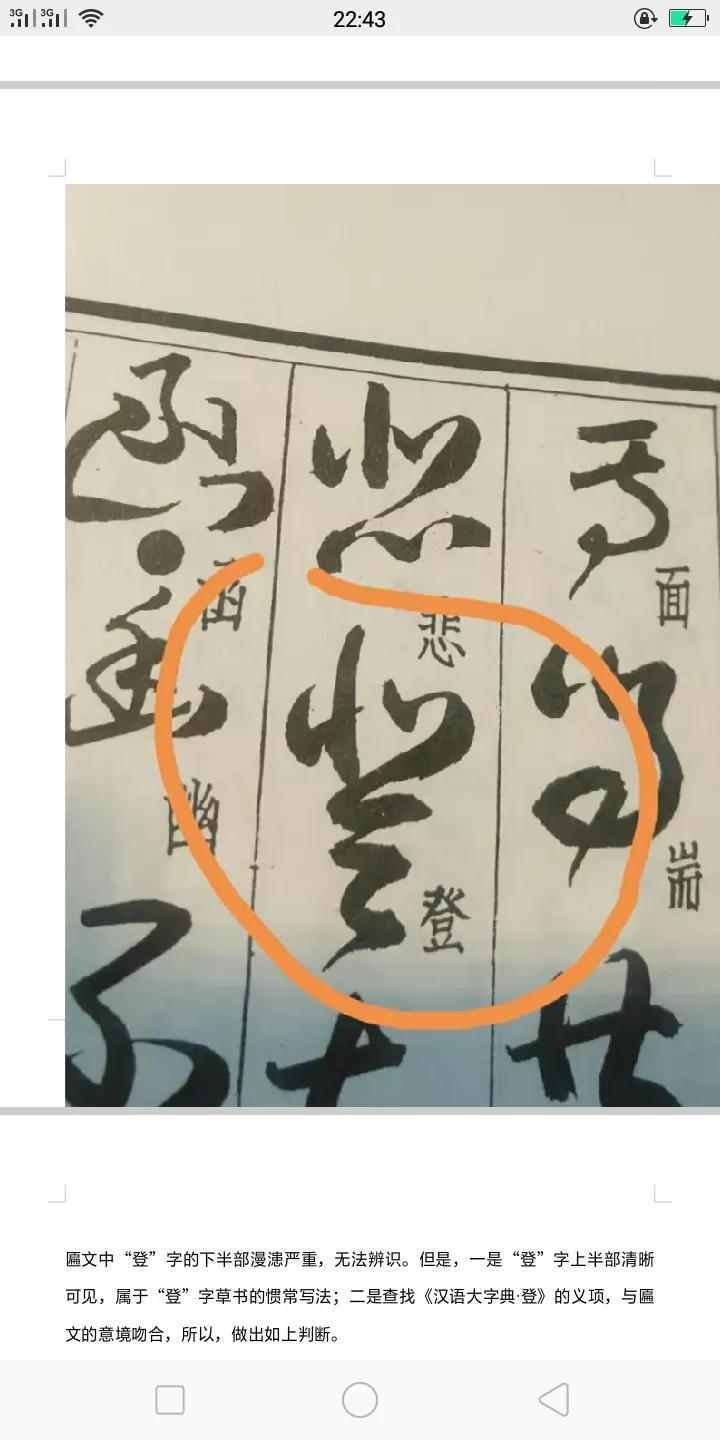 3G 3G 22:43
面
耑
悲
登
函
幽
匾文中“登”字的下半部漫漶严重，无法辨识。但是，一是“登”字上半部清晰
可见，属于“登”字草书的惯常写法；二是查找《汉语大字典·登》的义项，与匾
文的意境吻合，所以，做出如上判断。